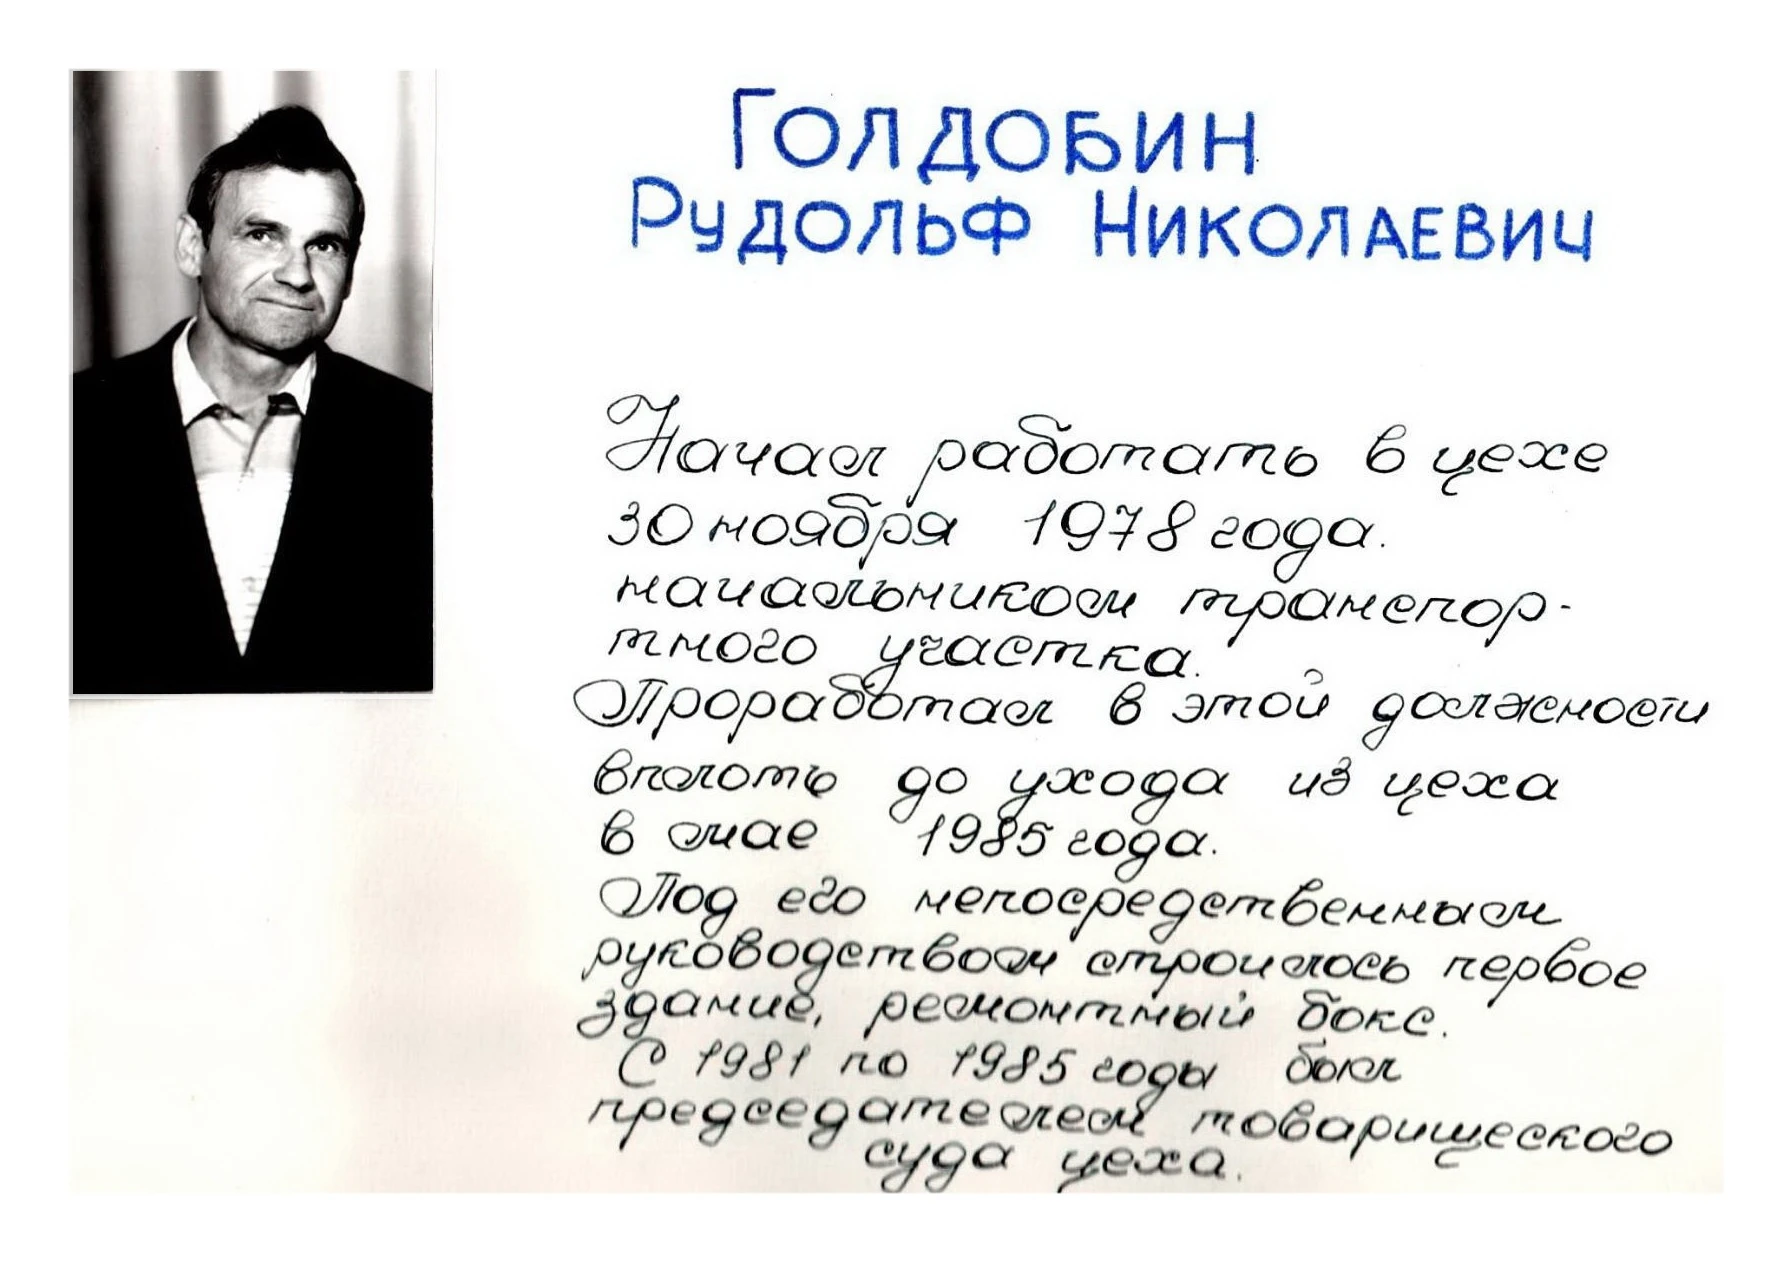 ГОЛДОБИН
РУДОЛЬФ НИКОЛАЕВИЧ
Начал работать в цехе
30 ноября 1978 года.
начальником транспор-
тного участка.
Проработал в этой должности
вплоть до ухода из цеха
в мае 1985 года.
Под его непосредственным
руководством строилось первое
здание, ремонтный бокс.
С 1981 по 1985 годы был
председателем товарищеского
суда цеха.